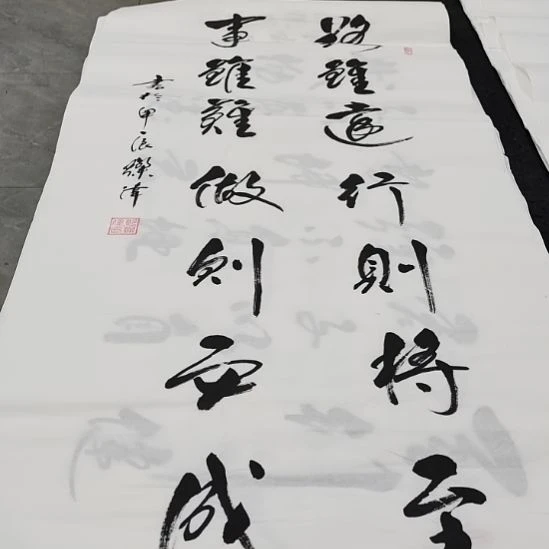 路雖遠行則將至
事雖難做則成
書於甲辰